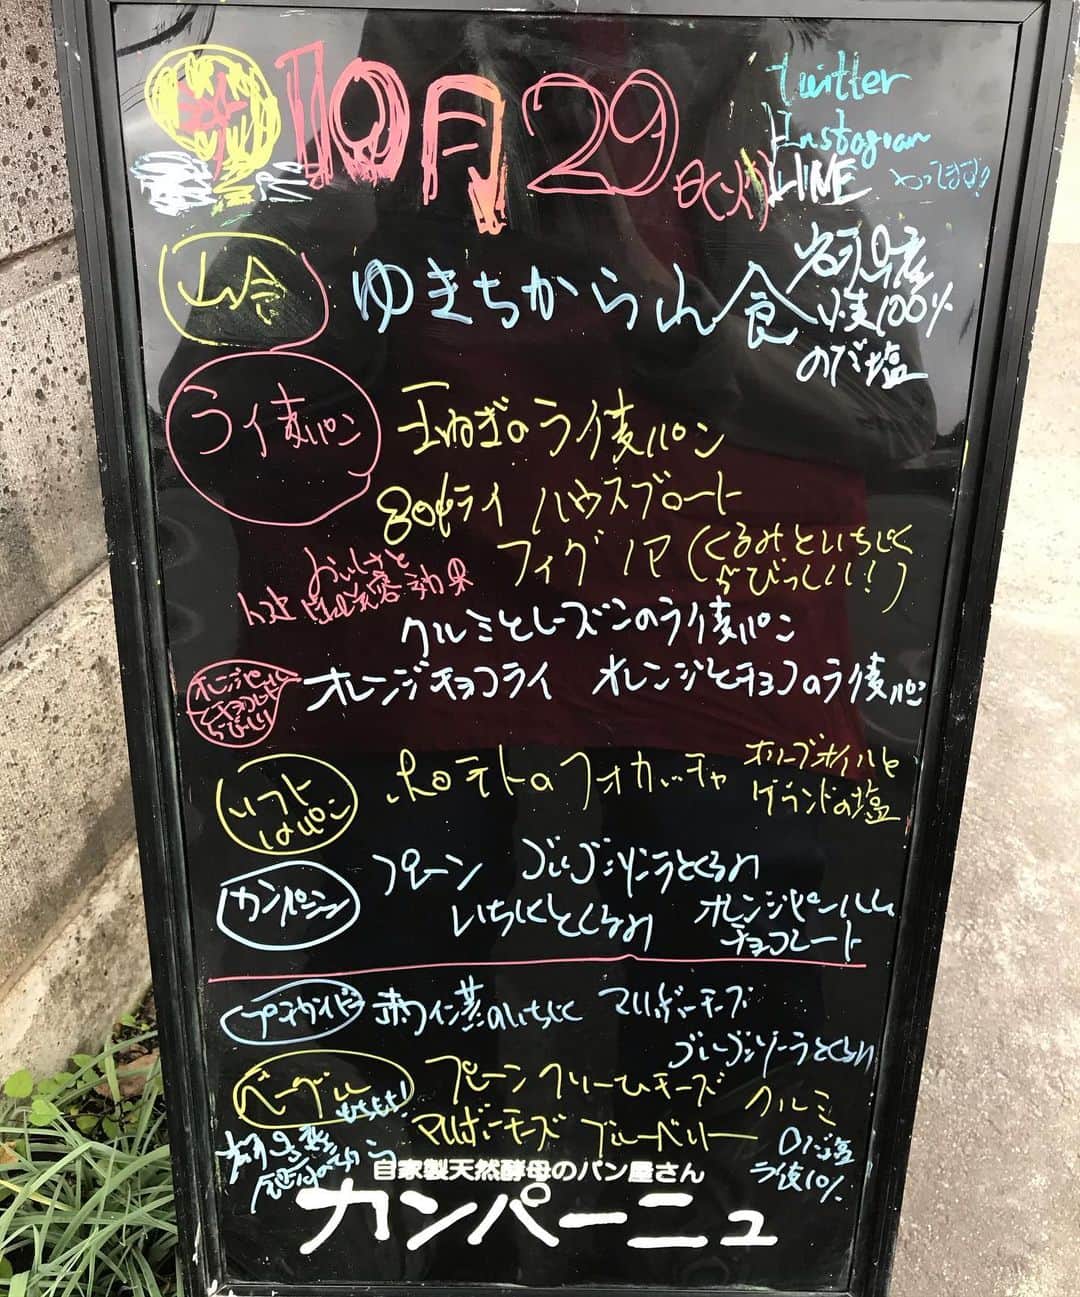 10月29日(火)
twitter
Instagram
LINE
やってます!!
山食
ゆきちから山食
岩手県産
小麦100%
のだ塩
ライ麦パン
玉ねぎのライ麦パン
80%ライ ハウスブロート
おいしさと
美容効果
フィグノア(くるみといちじく
らびっしり!)
クルミとレーズンのライ麦パン
オレンジピールと
チョコレート
びっしり
オレンジチョコライ オレンジとチョコのライ麦パン
ソフト
パン
ポテトのフォカッチャ
オリーブオイルと
ゲランドの塩
カンパーニュ
プレーン ゴルゴンゾーラとくるみ
いちじくとくるみ
オレンジピール
チョコレート
プチカンパーニュ
赤ワイン煮のいちじく マリボーチーズ
ゴルゴンゾーラとくるみ
ベーグル
もちもち!
プレーン クリームチーズ クルミ
マリボーチーズ ブルーベリー
のだ塩
ライ麦10%
自家製天然酵母のパン屋さん
カンパーニュ